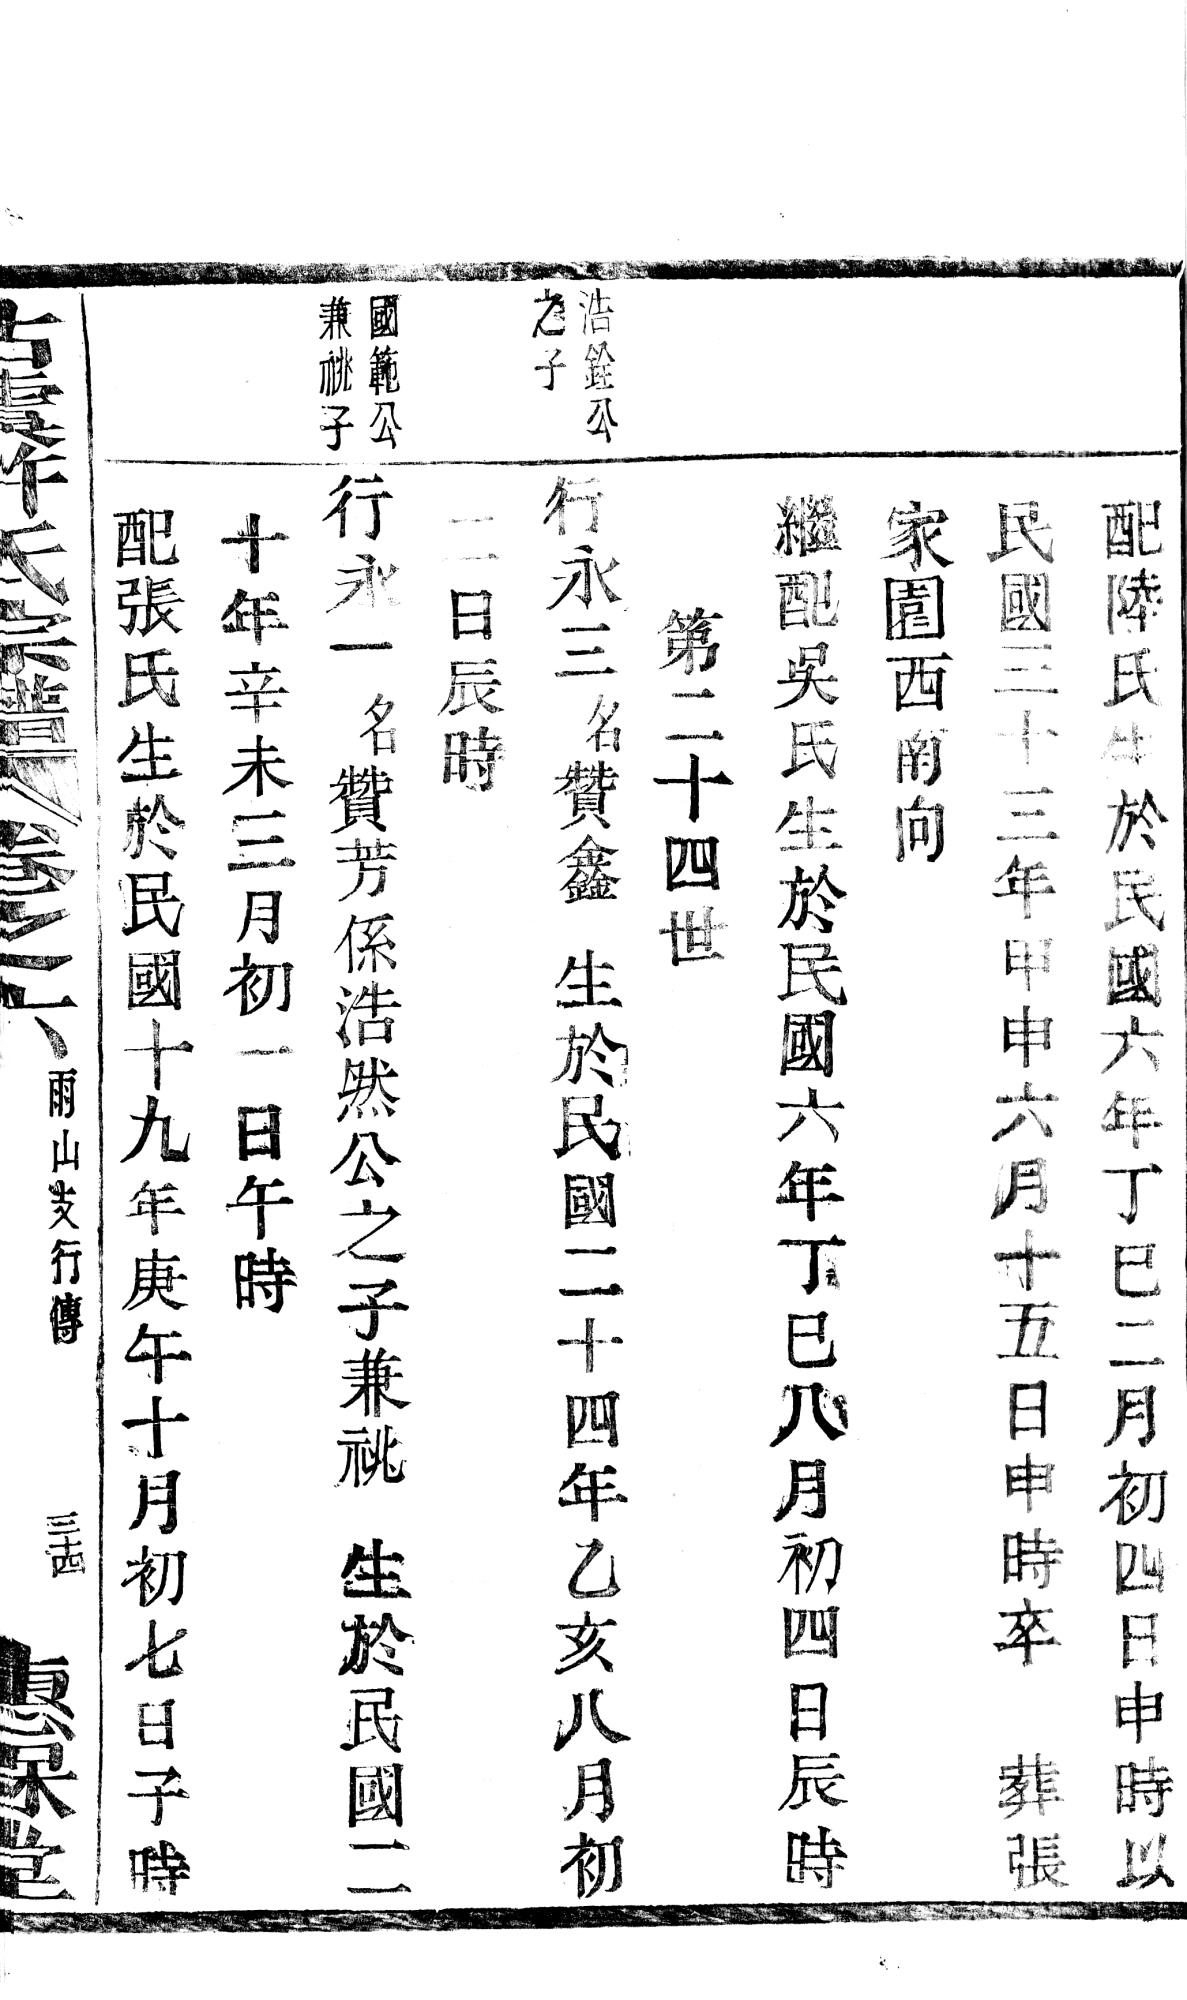 配陸氏生於民國六年丁巳二月初四日申時以
民國三十三年甲申六月十五日申時卒　葬張
家園西南向
繼配吳氏生於民國六年丁巳八月初四日辰時
第二十四世
浩銓公
之子
行永三名贊鑫　生於民國二十四年乙亥八月初
二日辰時
國範公
兼祧子
行永一名贊芳係浩然公之子兼祧　生於民國二
十年辛未三月初一日午時
配張氏生於民國十九年庚午十月初七日子時
氏宗譜
卷之六
雨山支行傳
三十四
堂